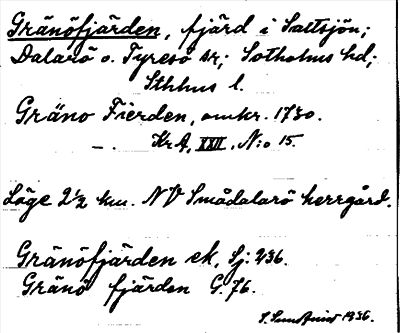 Gränöfjärden, fjärd i Saltsjön;
Dalarö o. Tyresö sr; Sotholms hd;
Sthlms l.
Gränö Fierden, omkr. 1730.
—. KrA, XXII, N:o 15.
Läge 2½ km. NV Smådalarö herrgård.
Gränöfjärden ek, Sj: 236.
Gränö fjärden G. 76.
1936.